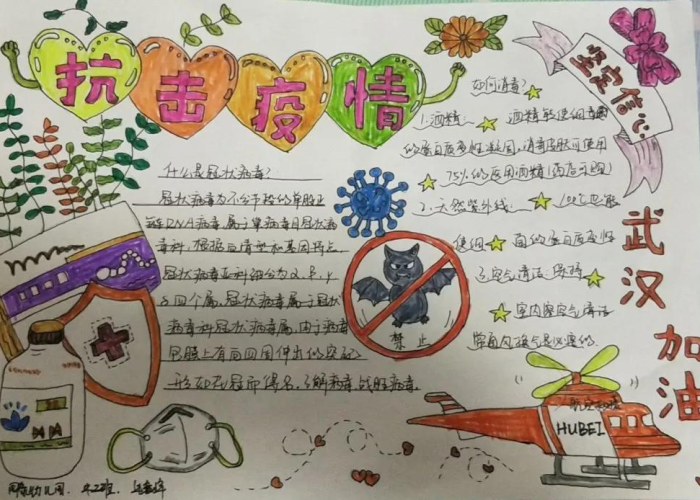 抗击疫情
坚定信心
如何消毒?
什么是冠状病毒?
1.酒精 酒精能使细菌
的蛋白质变性凝固,消毒皮肤可使用
75%的医用酒精
冠状病毒为不分节段的单股正
链RNA病毒,属于
病毒科,根据血清型和基因特点
冠状病毒亚科细分为α、β、γ
δ四个属,冠状病毒属于冠状
病毒科冠状病毒属,由于病毒
包膜上有向四周伸出的突起
形如花冠而得名,了解病毒,战胜病毒
2.天然紫外线 100℃也能
使细 菌的蛋白质变性
3.空气清洁 保持
室内空气清洁
常通风换气是必要的
禁止
武汉
加油
HUBEI
幼儿园